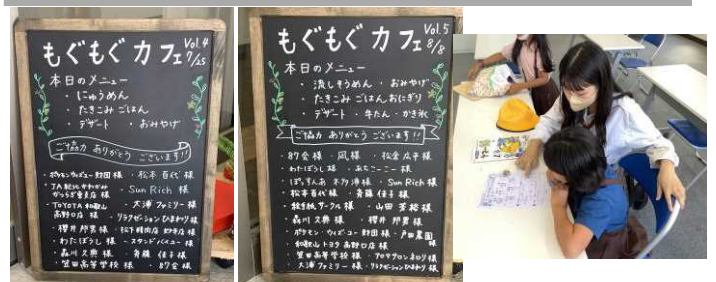 もぐもぐカフェ Vol.4 7/25
本日のメニュー
・にゅうめん
・たきこみごはん
・デザート ・おみやげ
ご協力ありがとうございます!!
・ポケモンウィズユー財団様 ・松本百代様
・JA紀北かわかみ ・Sun Rich 様
・TOYOTA和歌山 ・大浦ファミリー様
高野口店様 ・リラクゼーションひまわり様
・櫻井邦男様
・わたぼうし様 ・スタンドバイユー様
・森川久典様 ・斉藤佳子様
・笠田高等学校様 ・87会様
もぐもぐカフェ Vol.5 8/8
本日のメニュー
・流しそうめん ・おみやげ
・たきこみごはんおにぎり
デザート ・牛たん ・かき氷
ご協力ありがとうございます!!
・87会様 ・凧様
・わたぼうし様
・Sun Rich 様
・松本百代様 ・斉藤佳子様
・絵手紙サークル様 ・山田芳裕様
・森川久典様 ・櫻井邦男様
・ポケモン・ウィズユー財団様 ・戸田農園様
・和歌山トヨタ高野口店様
・笠田高等学校様
・大浦ファミリー様 ・リラクゼーションひまわり様